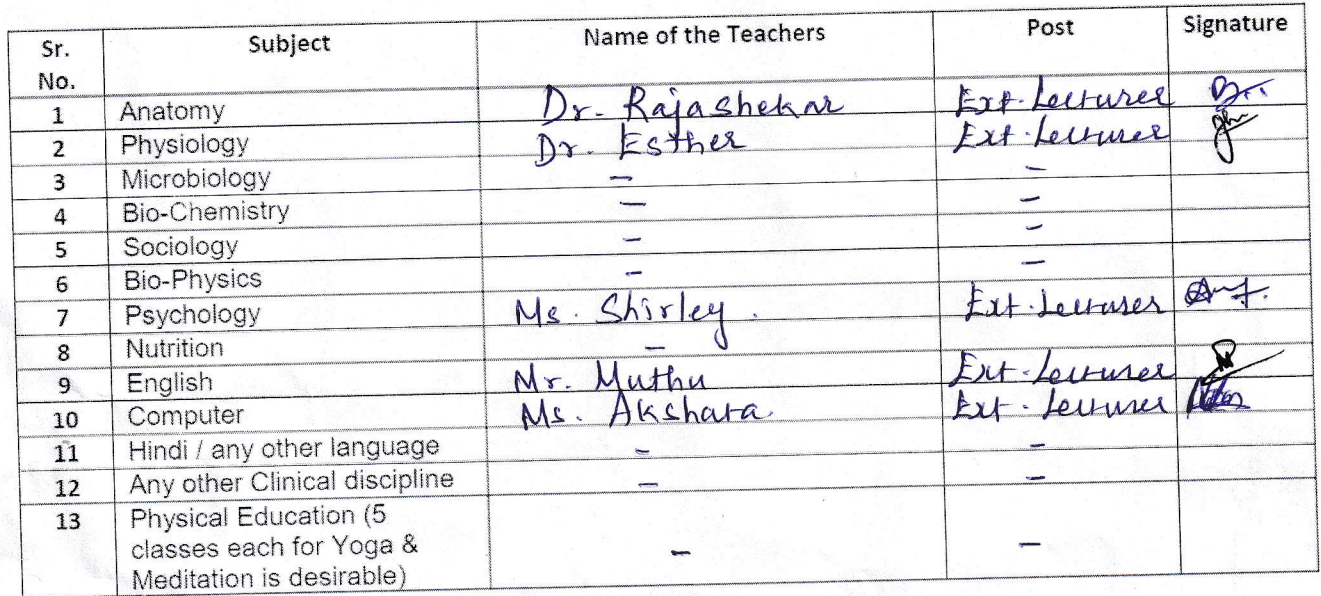 Sr. No. Subject Name of the Teachers Post Signature
1 Anatomy Dr. Rajashekar Ext. Lecturer
2 Physiology Dr. Esther Ext. Lecturer
3 Microbiology – –
4 Bio-Chemistry – –
5 Sociology – –
6 Bio-Physics – –
7 Psychology Ms. Shirley. Ext. Lecturer
8 Nutrition –
9 English Mr. Muthu Ext. Lecturer
10 Computer Ms. Akshara. Ext. Lecturer
11 Hindi / any other language – –
12 Any other Clinical discipline – –
13 Physical Education (5
classes each for Yoga & – –
Meditation is desirable)